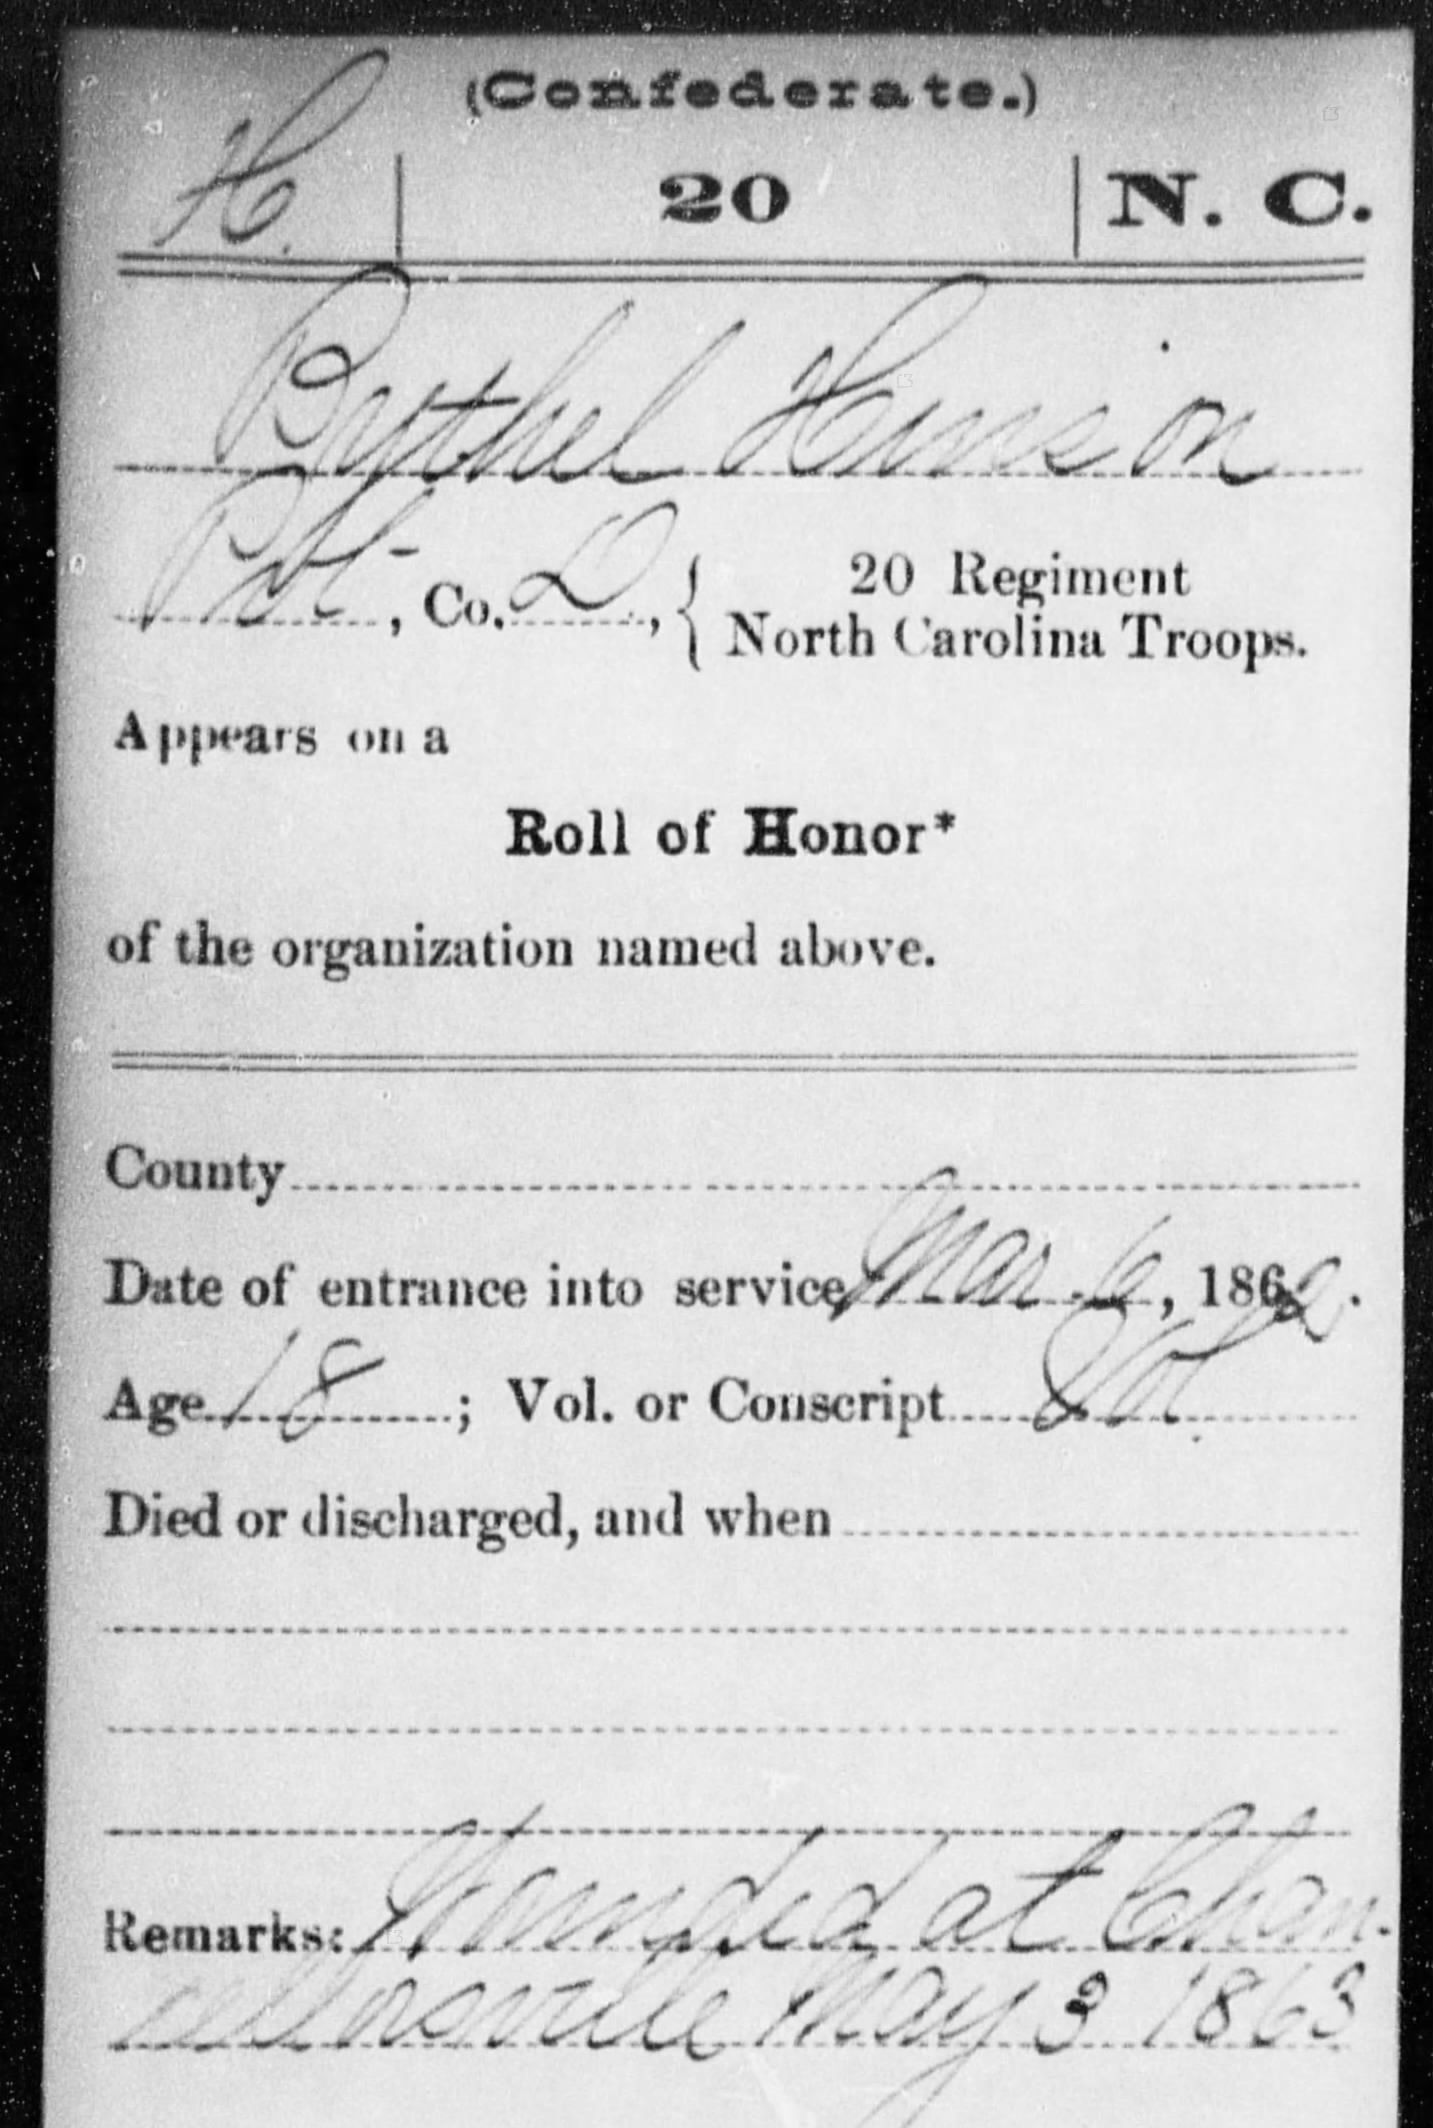 (Confederate.)
H. | 20 | N. C.
Bythel Hinson
Pvt, Co. D, { 20 Regiment
North Carolina Troops.
Appears on a
Roll of Honor*
of the organization named above.
County
Date of entrance into service Mar. 6, 1862.
Age 18 ; Vol. or Conscript Vol.
Died or discharged, and when
Remarks: Wounded at Chan-
cellorsville May 3 1863